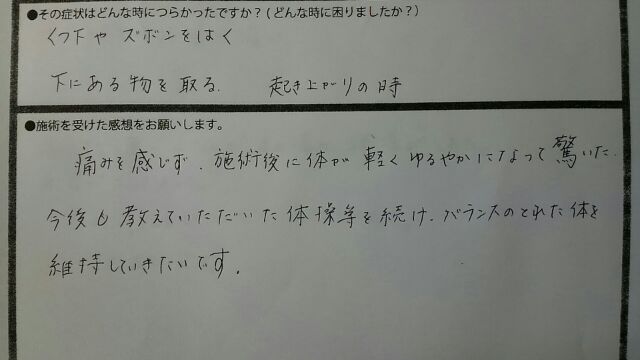 ●その症状はどんな時につらかったですか？(どんな時に困りましたか？)
くつ下や ズボンをはく
下にある物を取る. 起き上がりの時
●施術を受けた感想をお願いします。
痛みを感じず、施術後に体が軽くゆるやかになって驚いた.
今後も教えていただいた体操等を続け、バランスのとれた体を
維持していきたいです。